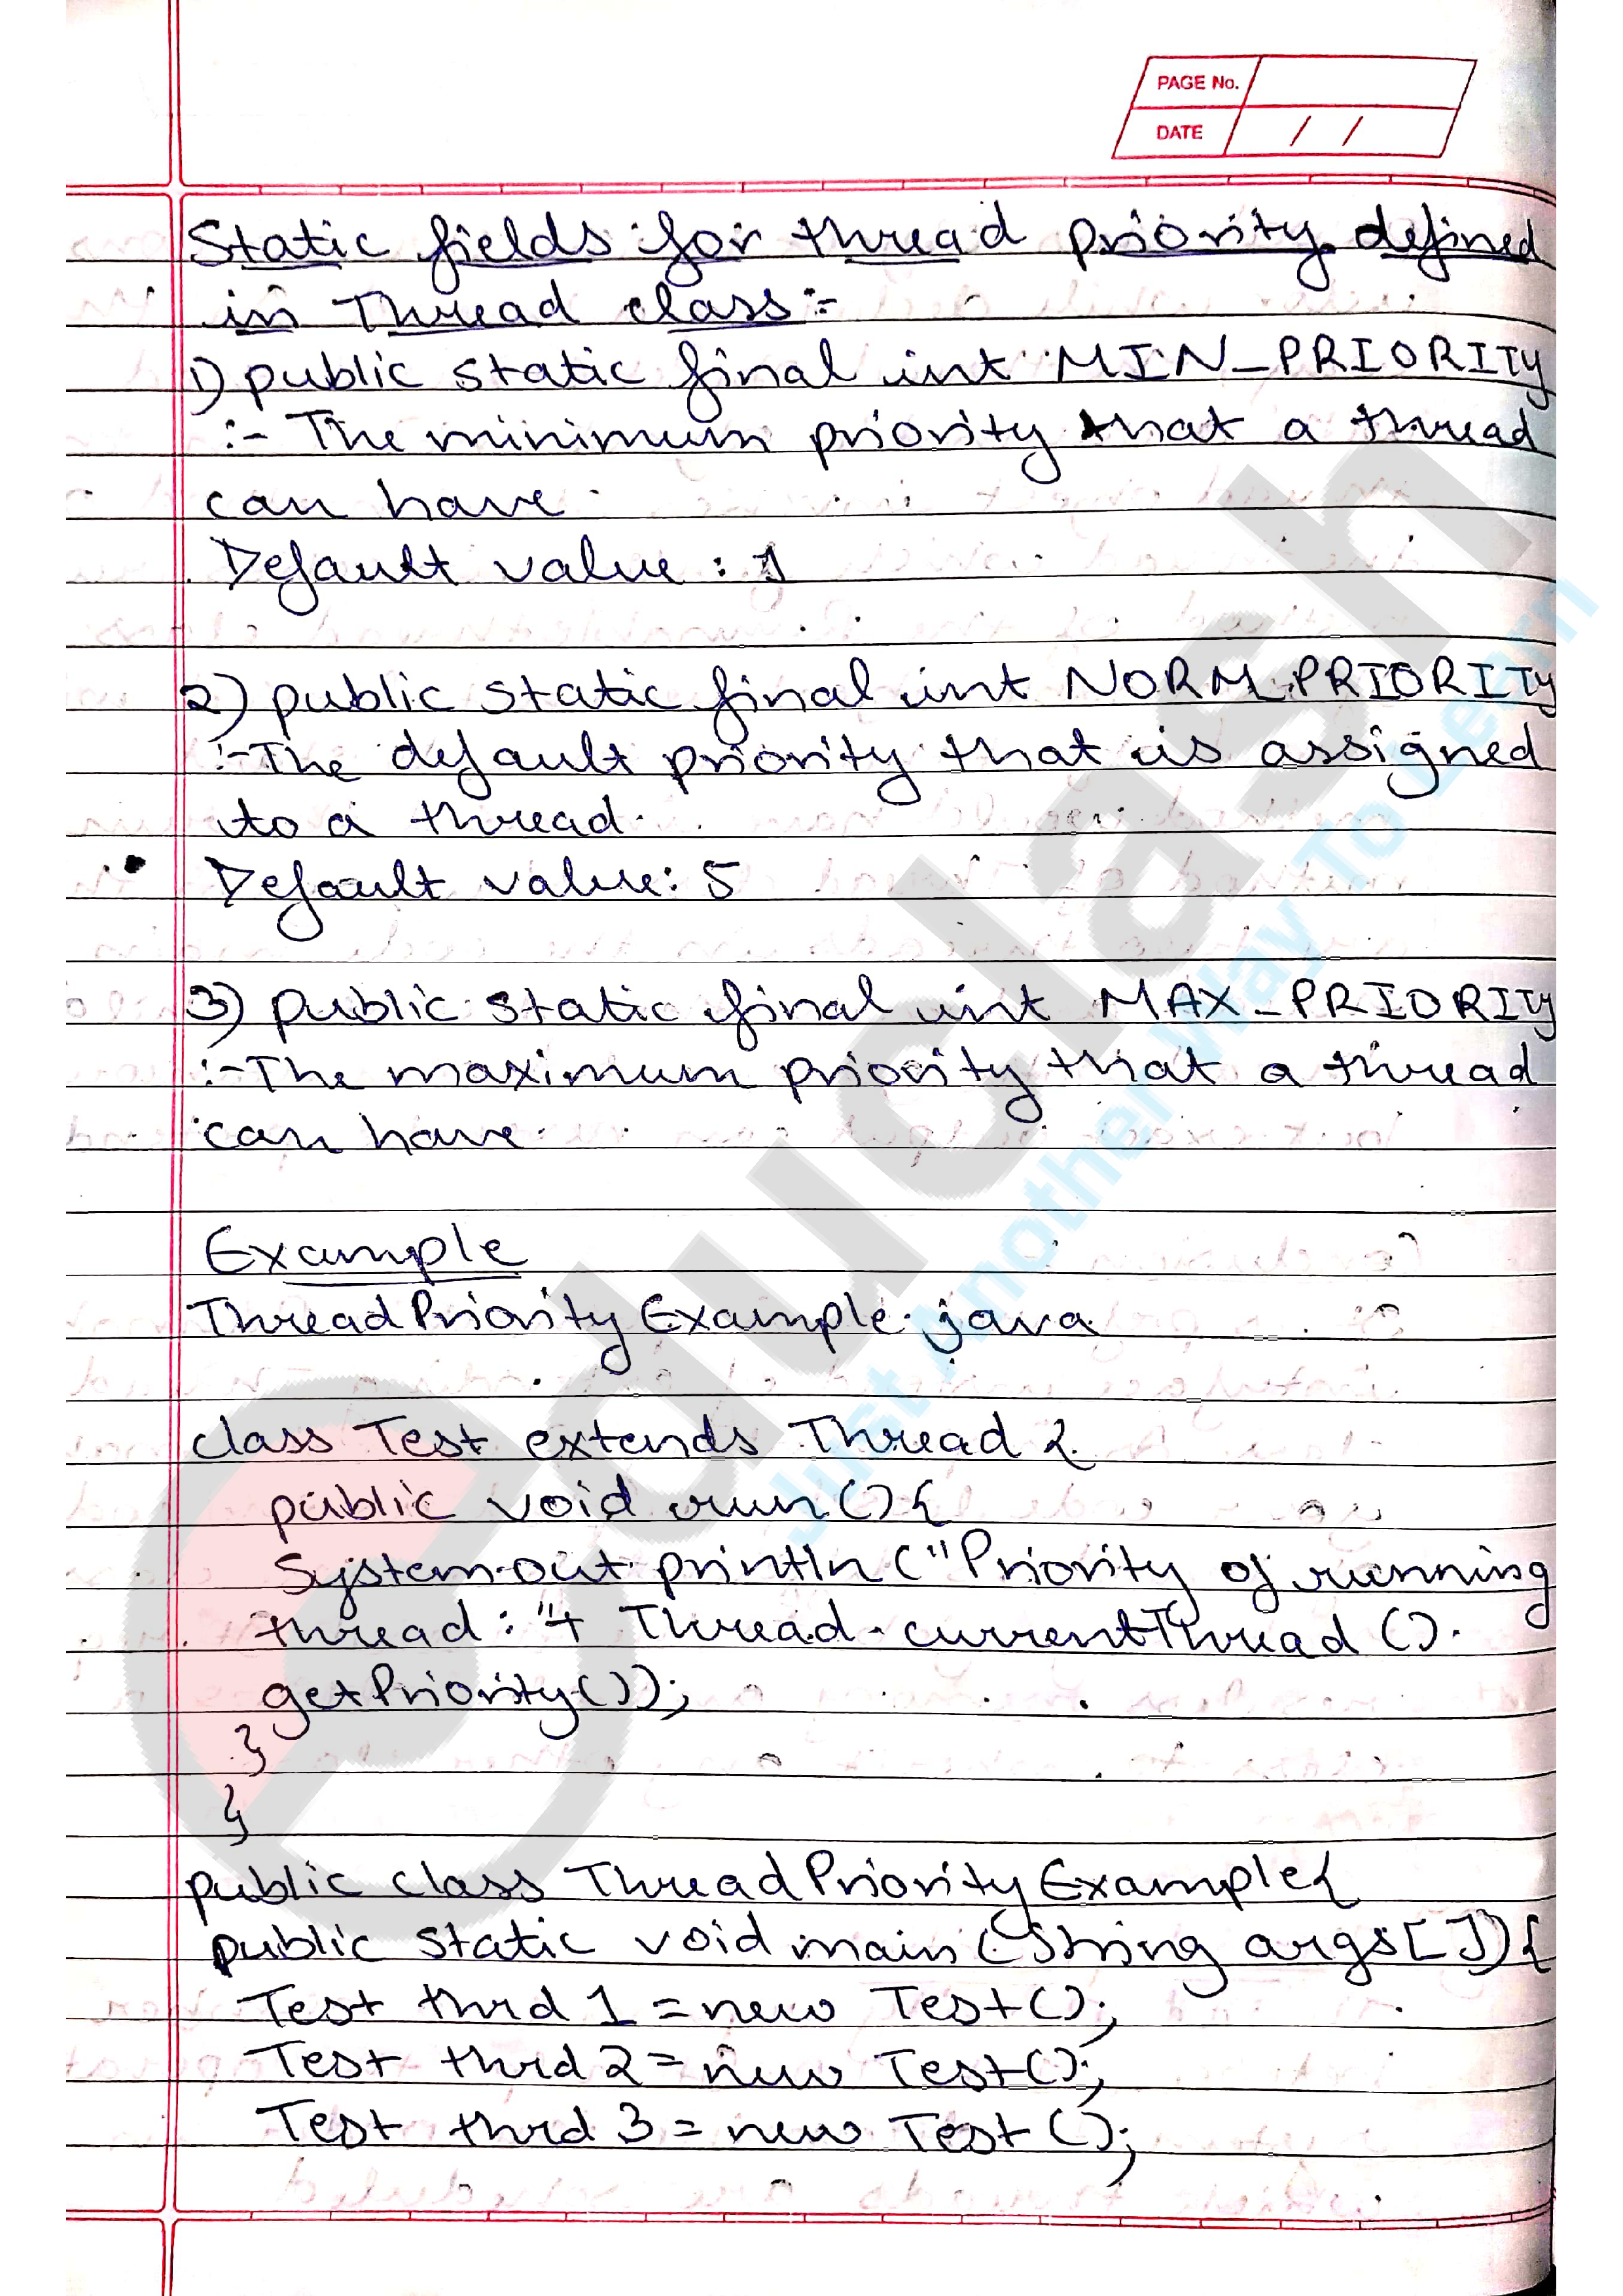 PAGE No.
DATE / /
Static fields for thread priority defined
in Thread class :-
1) public static final int MIN_PRIORITY
:- The minimum priority that a thread
can have.
Default value : 1
2) public static final int NORM_PRIORITY
:- The default priority that is assigned
to a thread.
Default value: 5
3) public static final int MAX_PRIORITY
:- The maximum priority that a thread
can have.
Example
ThreadPriorityExample.java
class Test extends Thread {
public void run(){
System.out.println("Priority of running
thread: "+ Thread.currentThread().
getPriority());
}
}
public class ThreadPriorityExample{
public static void main(String args[]){
Test thrd1 = new Test();
Test thrd2 = new Test();
Test thrd3 = new Test();
educlash
Just Another Way To Learn